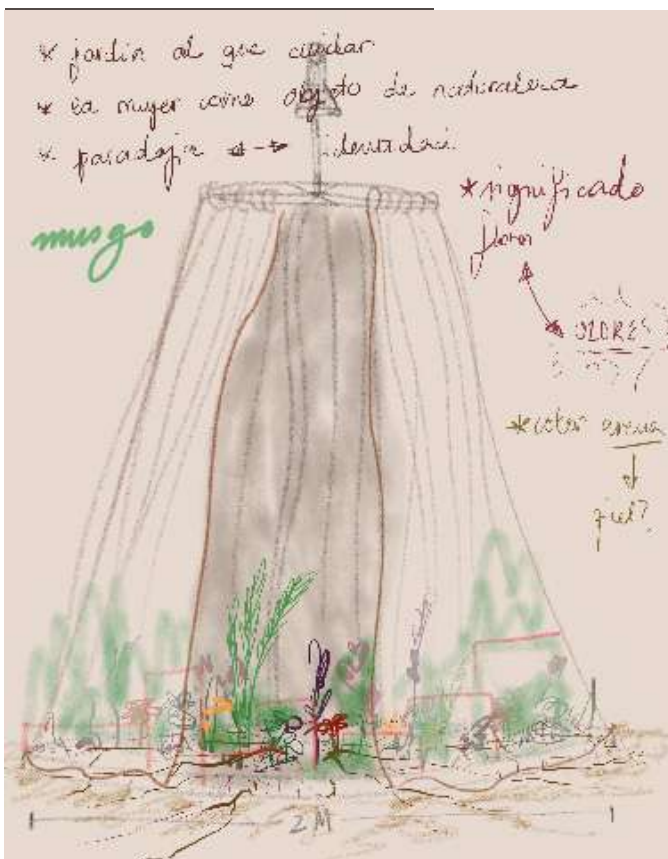 * jardin al que cuidar
* la mujer como objeto de naturaleza
* paradoja <--> identidad
musgo
* significado
flores
OLORES
* color arena
↓
piel?
2 M